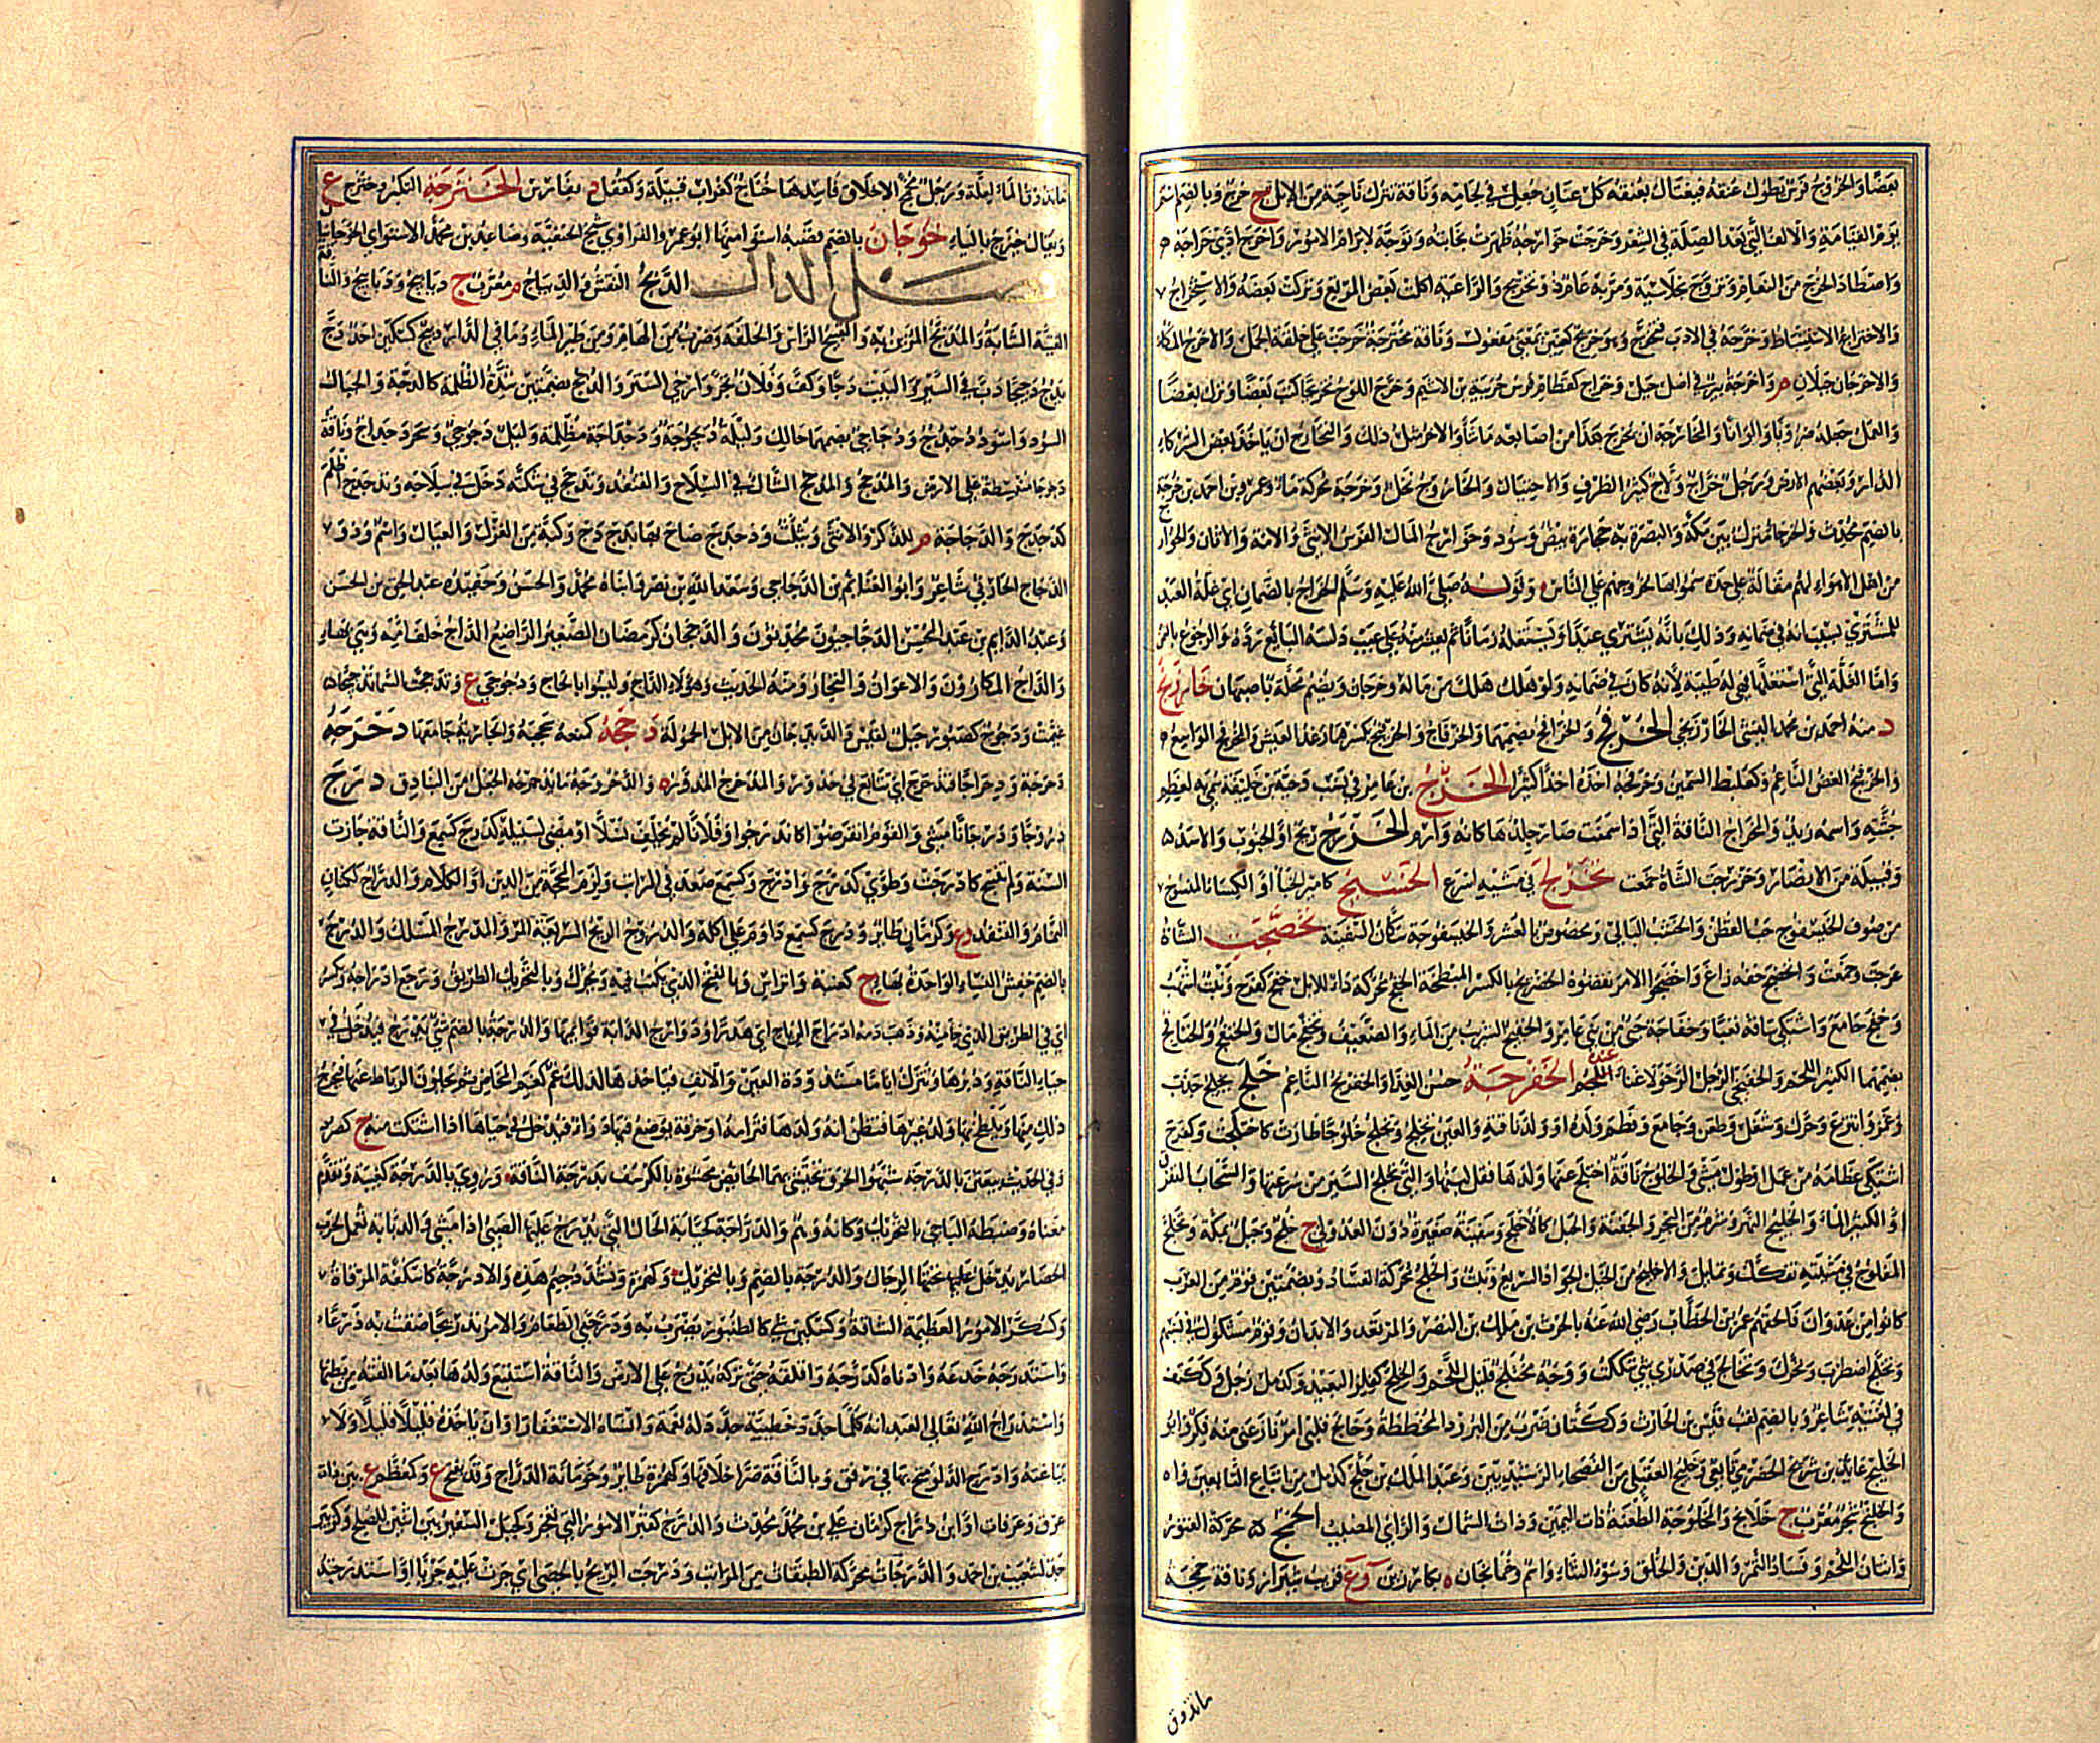 بعضا والخروج فرس يطول عنقه فيغتال بعنقه كل عنان جعل في لجامه وناقة تبرك ناحية من الابل ج خرج وبالضم اسم
يوم القيامة والالف التي بعد الصلة في الشعر وخرجت خوارجه ظهرت نجابته وتوجه لابرام الامور واخرج ادى خراجه
واصطاد الخرج من النعام وتزوج بخلاسية ومر به عام ذو تخريج والراعية اكلت بعض المرتع وتركت بعضه والاستخراج
والاختراج الاستنباط وخرجه في الادب فتخرج وهو خريج كعنين بمعنى مفعول وناقة مخترجة خرجت على خلقة الجمل والاخرج المكاء
والاخرجان جبلان م واخرجة بئر في اصل جبل وخراج كقطام فرس جريبة بن الاشيم وخرج اللوح تخريجا كتب بعضا وترك بعضا
والعمل جعله ضروبا والوانا والمخارجة ان يخرج هذا من اصابعه ما شاء والاخر مثل ذلك والتخارج ان ياخذ بعض الشركاء
الدار وبعضهم الارض ورجل خراج ولاج كثير الظرف والاحتيال والخاروج نخل وخرجة محركة ماء وعمر وبن احمد بن خرجة
بالضم محدث والخرجاء منزل بين مكة والبصرة به حجارة بيض وسود وخوارج المال الفرس الانثى والامة والاتان والخوارج
من اهل الاهواء لهم مقالة على حدة سموا به لخروجهم على الناس وقوله صلى الله عليه وسلم الخراج بالضمان اي غلة العبد
للمشتري بسبب انه في ضمانه وذلك بانه يشتري عبدا ويستغله زمانا ثم يعثر منه على عيب دلسه البائع رده والرجوع بالثمن
واما الغلة التي استغلها فهي له طيبة لانه كان في ضمانه ولو هلك هلك من ماله وخرجان ويضم محلة باصبهان خارزنج
د منه احمد بن محمد البشتي الخارزنجي الخرفج والخرافج بضمهما والخرفاج والخرفيج بكسرهما رغد العيش والمخرفج الواسع
والخرفج الغض الناعم وكعلبط السمين وخرفجه اخذه اخذا كثيرا الخزج بن عامر في نسب دحية بن خليفة سمي به لعظم
جثته واسمه زيد والمخزاج الناقة التي اذا سمنت صار جلدها كانه وارم الخزرج ريح او الجنوب والاسد
وقبيلة من الانصار وخزرجت الشاة خمعت تخزلج في مشيه اسرع الخسيج كامير الخباء او الكساء المنسوج
من صوف الخيسفوج حب القطن والخشب البالي وبخصوص بالعشر والخيسفوجة سكان السفينة تخضجت الشاة
عرجت وخمعت والخضج خفه زاغ واخضجوا الامر نقضوه الخضريج بالكسر المبطخة الخفج محركة داء للابل خفج كفرح ونبت اشهب
وخفج جامع واشتكى ساقه تعبا وخفاجة حي من بني عامر والخفيج الشريب من الماء والضعيف وتخفج مال والخفنج والخنافج
بضمهما الكثير اللحم والخفيجى الرجل الرخو لا غناء عنده الخفرجة حسن الغذاء والخفريج الناعم خلج يخلج جذب
وغمز وانتزع وحرك وشغل وطعن وجامع وفطم ولده او ولد ناقته والعين تخلج وتخلج خلوجا طارت كاختلجت وكفرح
اشتكى عظامه من عمل او طول مشي والخلوج ناقة اختلج عنها ولدها فقل لبنها والتي تخلج السير من سرعتها والسحاب المتفرق
او الكثير الماء والخليج النهر وشرم من البحر والجفنة والحبل كالاخلج وسفينة صغيرة دون العدولي ج خلج وجبل بمكة وتخلج
المفلوج في مشيته تفكك وتمايل والاخليج من الخيل الجواد السريع ونبت والخلج محركة الفساد وبضمتين قوم من العرب
كانوا من عدوان فالحقهم عمر بن الخطاب رضي الله عنه بالحرث بن مالك بن النضر والمرتعد والابدان وقوم مشكوك في نسبهم
وتخلج اضطرب وتحرك وتخالج في صدري شيء شككت ووجه مختلج قليل اللحم والخلج كفلز البعيد وكدمل رجل وككتف
في لغتيه شاعر وبالضم لقب قيس بن الحارث وككتان ضرب من البرود المخططة وخالج قلبي امر نازعني منه فكر وابو
الخليج عائذ بن شريح الحضرمي تابعي وخليج العقيلي من الفصحاء الرشيديين وعبد الملك بن خلج كدمل من اتباع التابعين
والخلنج شجر معرب ج خلانج والمخلوجة الطعنة ذات اليمين وذات الشمال والراي المصيب الخمج محركة الفتور
وانتان اللحم وفساد التمر والدين والخلق وسوء الثناء واسم وخمايجان ه بكارزين وع قرب شيراز وناقة خمجة
ماتذوق
ماتذوق الماء لعلة ورجل مخمج الاخلاق فاسدها خناج كغراب قبيلة وكقفل د بفارس الخنزجة التكبر وخنزج ع
ويقال خيزج بالياء خوجان بالضم قصبة استوا منها ابو عمرو الفراتي شيخ الحنفية وصاعد بن محمد الاستوائي الخوجانيان
فصل الدال الدبج النقش والديباج م معرب ج دباييج ودبابيج والناقة
الفتية الشابة والمدبج المزين به والقبيح الراس والخلقة وضرب من الهام ومن طير الماء وما في الدار دبيج كسكين احد دج
يدج دجيجا دب في السير والبيت دجا وكف وفلان تجر وارخى الستر والدجج بضمتين شدة الظلمة كالدجة والجبال
السود واسود دجدج ودجاجي بضمهما حالك وليلة ديجوجة ودجداجة مظلمة وليل دجوجي وبحر دجداج وناقة
دجوجاة منبسطة على الارض والمدجج والمدجج الشاك في السلاح والقنفذ وتدجج في شكته دخل في سلاحه وتدجدج اظلم
كدجدج والدجاجة م للذكر والانثى ويثلث ودجدج صاح بها بدج دج وكبة من الغزل والعيال واسم وذو
الدجاج الحارثي شاعر وابو الغنائم بن الدجاجي وسعد الله بن نصر وابناه محمد والحسن وحفيده عبد الحق بن الحسن
وعبد الدايم بن عبد المحسن الدجاجيون محدثون والدججان كرمضان الصغير الراضع الداج خلف امه وهي بهاء
والداج المكارون والاعوان والتجار ومنه الحديث وهؤلاء الداج وليسوا بالحاج ودجوجى ع وتدججت السماء تدجيجا
غيمت ودجوج كصبور جبل لقيس والديدجان من الابل الحمولة دحجه كمنعه سحبه والجارية جامعها دحرجه
دحرجة ودحراجا فتدحرج اي تتابع في حدور والمدحرج المدور والدحروجة ما يدحرجه الجعل من البنادق درج
دروجا ودرجانا مشى والقوم انقرضوا كاندرجوا وفلان لم يخلف نسلا او مضى لسبيله كدرج كسمع والناقة جازت
السنة ولم تنتج كادرجت وطوي كدرج وادرج وكسمع صعد في المراتب ولزم المحجة من الدين او الكلام والدراج ككتان
النمام والقنفد وع وكرمان طائر ودرج كسمع داوم على اكله والدروج الريح السريعة المر والمدرج المسلك والدرج
بالضم حفش النساء الواحدة بهاء ج كعنبة واتراس وبالفتح الذي يكتب فيه ويحرك وبالتحريك الطريق ورجع ادراجه ويكسر
اي في الطريق الذي جاء منه وذهب دمه ادراج الرياح اي هدرا ودوارج الدابة قوائمها والدرجة بالضم شيء يدرج فيدخل في
حياء الناقة ودبرها وتترك اياما مشدودة العين والانف فياخذها لذلك غم كغم المخاض ثم يحلون الرباط عنها فيخرج
ذلك منها ويلطخ به ولد غيرها فتظن انه ولدها فترامه او خرقة يوضع فيها دواء فيدخل في حياها اذا اشتكت منه ج كصرد
وفي الحديث يبعثن بالدرجة شبهوا الخرق تحتشي بها الحائض محشوة بالكرسف بدرجة الناقة وروي بالدرجة كعنبة وتقدم
معناه وضبطه الباجي بالتحريك وكانه وهم والدراجة كجبانة الحال التي يدرج عليها الصبي اذا مشى والدبابة تعمل لحرب
الحصار يدخل عليها تحتها الرجال والدرجة بالضم وبالتحريك وكهمزة وتشدد جيم هذه والادرجة كاسكفة المرقاة
وكسكر الامور العظيمة الشاقة وكسكين شيء كالطنبور يضرب به ودرجني الطعام والامر تدريجا ضقت به ذرعا
واستدرجه خدعه وادناه كدرجه واقلقه حتى تركه يدرج على الارض والناقة استتبع ولدها بعد ما القته من بطنها
واستدراج الله تعالى العبد انه كلما جدد خطيئة جدد له نعمة وانساه الاستغفار او ان ياخذه قليلا قليلا ولا
يباغته وادرج الدلو متح بها في رفق وبالناقة صر اخلافها وكهمزة طائر وحومانة الدراج وقد تفتح ع وكمعظم ع بين ذات
عرق وعرفات او ابن دراج كرمان علي بن محمد محدث والدرج كقبر الامور التي تعجز وكجبل السفير بين اثنين للصلح وكزبير
جد لشعيب بن احمد والدرجات محركة الطبقات من المراتب ودرجت الريح بالحصى اي جرت عليه جريا او استدرجته